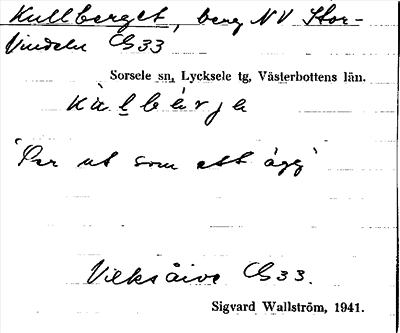 Kullberget, berg NV Stor-
Vindeln G33
Sorsele sn, Lycksele tg, Västerbottens län.
kùlbérje
'Ser ut som ett ägg'
Vilksåive G33.
Sigvard Wallström, 1941.